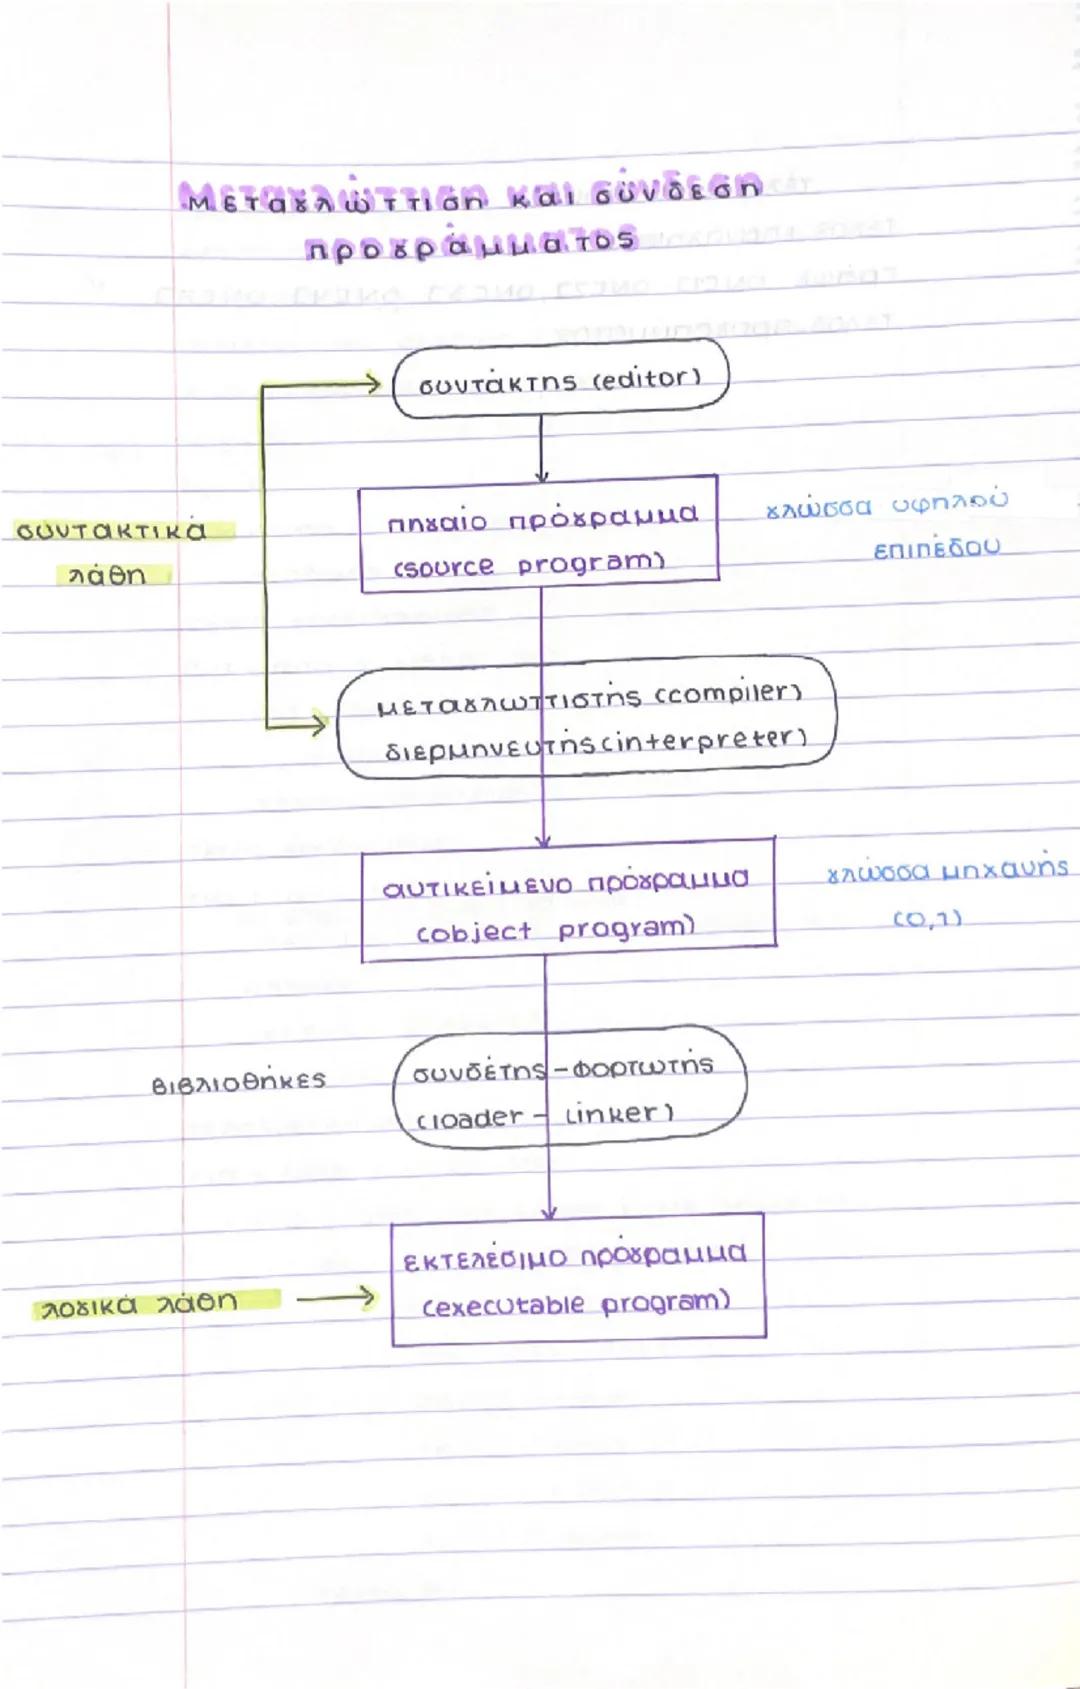 Μεταγλώττιση και σύνδεση
προγράμματος
συντάκτης (editor)
συντακτικά
λάθη
πηγαίο πρόγραμμα
(source program)
γλώσσα υψηλού
επιπέδου
μεταγλωττιστής (compiler)
διερμηνευτής (interpreter)
αντικείμενο πρόγραμμα
(object program)
γλώσσα μηχανής
(0,1)
βιβλιοθήκες
συνδέτης - φορτωτής
(loader - linker)
λογικά λάθη
εκτελέσιμο πρόγραμμα
(executable program)